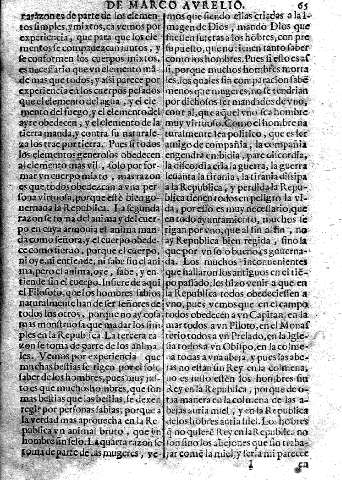 DE MARCO AVRELIO.
65
razones de parte de los elemen-
tos simples, y mixtos, ca vemos por
experiencia, que para que los ele-
mentos se compadezcan juntos, y
se conformen los cuerpos mixtos,
es necesario que vn elemento mã-
de mas que todos, y assi parece por
experiencia en los cuerpos pesados
que el elemento del agua, y el ele-
mento del fuego, y el elemento del
ayre obedecen, y el elemento de la
tierra manda, y contra su naturale-
za los trae por tierra. Pues si todos
los elementos generosos obedecen
al elemento mas vil, solo por for-
mar vn cuerpo mixto, mas razon
es que todos obedezcan a vna per-
sona virtuosa, porque esté bien go-
uernada la Republica. La segunda
razon se toma del anima y el cuer-
po en cuya armonia el anima man-
da como señora, y el cuerpo obede-
ce como sieruo, porque el cuerpo,
ni oye, ni entiende, ni sabe sin el ani
ma, pero el anima, oye, sabe, y en-
tiende sin el cuerpo. Infiere de aqui
el Filosofo, que los hombres sabios
naturalmente han de ser señores de
todos los otros, porque no ay cosa
mas monstruosa que mandar los sim-
ples en la Republica. La tercera ra-
zon se toma de parte de los anima
les. Vemos por experiencia que
muchas bestias se rigen por el solo
saber de los hombres, pues muy jus-
to es que muchos hombres, que son
mas bestias que las bestias, se dexen
regir por personas sabias; porque a
la verdad mas aprouecha en la Re
publica vn animal bruto, que vn
hombre sin seso. La quarta razon se
toma de parte de las mugeres, ve-
mos que siendo ellas criadas a la i-
magen de Dios, mando Dios que
fuessen sujetas a los hõbres, con pre
supuesto, que no tienen tanto saber
como los hombres. Pues si ello es as
si, porque muchos hombres morta
les, los quales sin comparacion sabẽ
menos que mugeres, no se tendrian
por dichosos ser mandados de vno,
con tal, que aquel vno sea hombre
muy virtuoso. Como el hombre na
turalmente sea politico, que es ser
amigo de compañia, la compañia
engendra embidia, pare discordia,
la discordia cria la guerra, la guerra
leuanta la tirania, la tirania disipa
a la Republica, y perdida la Repu-
blica tienen todos en peligro la vi-
da, por esso es muy necessario que
en todo ayuntamiento, muchos se
rigan por vno, que al fin al fin, no
ay Republica bien regida, sino la
que por vn solo bueno es gouerna-
da. Los muchos inconuenientes
que hallaron los antiguos en el tiẽ-
po passado, les hizo venir a que en
la republica todos obedeciessen a
vno, pues vemos que en el campo
todos obedecen a vn Capitan, en la
mar todos a vn Piloto, en el Monas
terio todos a vn Prelado, en la igle
sia todos a vn Obispo, en la colme
na todas a vna abeja, y pues las abe-
jas no estan sin Rey en la colmena,
no es justo estẽ los hombres sin
Rey en la Republica, porque de o-
tra manera de la colmena de las a-
bejas auria miel, y en la Republica
de los hõbres auria hiel. Los hõbres
q̃ no quierẽ Rey en la Republica no
son sino los abejones que sin traba-
jar comẽ la miel; y seria mi parecer
I
en